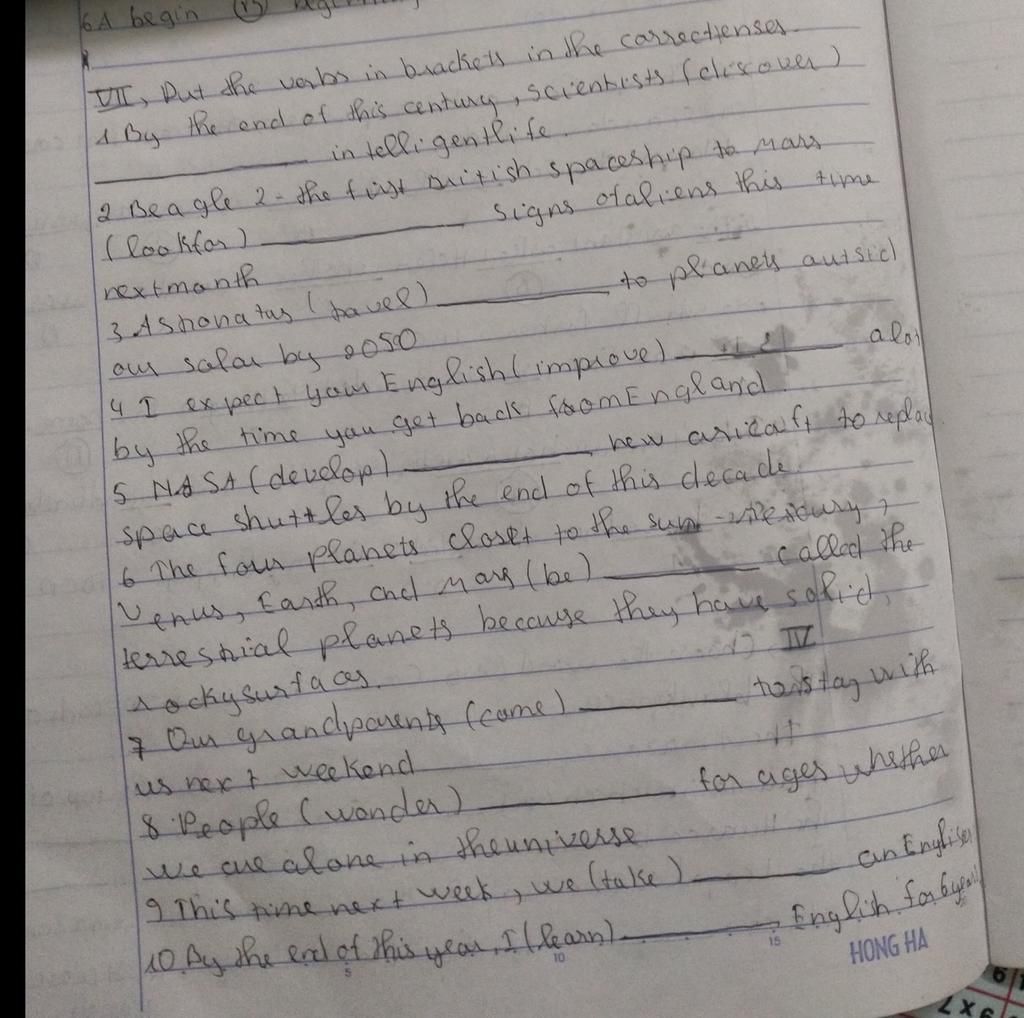 6A begin (B) begin
VII, Put the verbs in brackets in the correctienses.
1 By the end of this century, scientists (discover)
___________ intelligentlife.
2 Beagle 2 - the first British spaceship to Mars
(lookfor) ___________ signs ofaliens this time
nextmonth
3 Astronatus (travel) ___________ to planets outsid
our solar by 2050
4 I expect your English (improve) ___________ alot
by the time you get back fromEngland
5 NASA (develop) ___________ new aricaft to replac
space shuttles by the end of this decade.
6 The four planets closet to the sun - Mercury,
Venus, Earth, and Mars (be) ___________ called the
terrestrial planets because they have solid,
rockysurfaces.
7 Our grandparents (come) ___________ to stay with
us next weekend
8 People (wonder) ___________ for ages whether
we are alone in theuniversse
9 This time next week, we (take) ___________ an Englis
10 By the end of this year, I (learn) ___________, English for 6 year
5 10 15 HONG HA
9 x 7